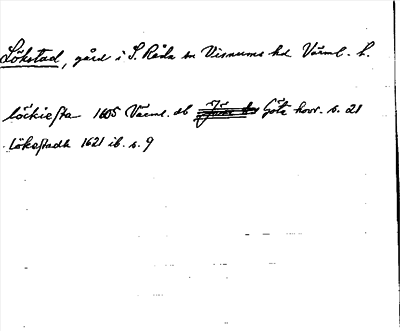 Lökstad, gård i S. Råda sn Visnums hd Värml. l.
löckiesta 1605 Värml. db Göta hovr. s. 21
Lökestadh 1621 ib. s. 9